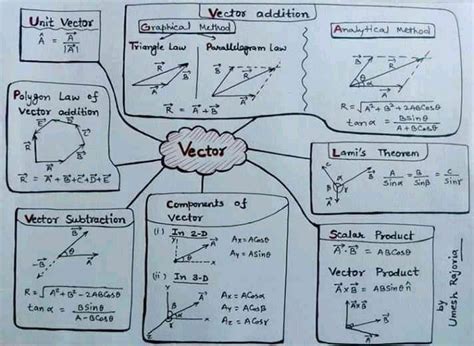 Unit Vector
Â = A⃗ / |A⃗|
Vector addition
Graphical Method
Triangle Law
R⃗
B⃗
A⃗
Parallelogram Law
B⃗
R⃗
A⃗
R⃗ = A⃗ + B⃗
Analytical Method
B⃗
R⃗
α
θ
A⃗
R = √A² + B² + 2ABCosθ
tanα = BSinθ / A + BCosθ
Polygon Law of
Vector addition
E⃗
D⃗
C⃗
B⃗
A⃗
R⃗
R⃗ = A⃗ + B⃗ + C⃗ + D⃗ + E⃗
Vector
Lami's Theorem
A / Sinα = B / Sinβ = C / Sinγ
Vector Subtraction
B⃗
θ
A⃗
-B⃗
R = √A² + B² - 2ABCosθ
tanα = BSinθ / A - BCosθ
Components of
Vector
(i) In 2-D
Y
A⃗
θ
X
Ax = ACosθ
Ay = ASinθ
(ii) In 3-D
Y
A⃗
β
α
γ
X
Z
Ax = ACosα
Ay = ACosβ
Az = ACosγ
Scalar Product
A⃗·B⃗ = ABCosθ
Vector Product
A⃗×B⃗ = ABSinθ n̂
A⃗×B⃗
B⃗
A⃗
by
Umesh Rajoria